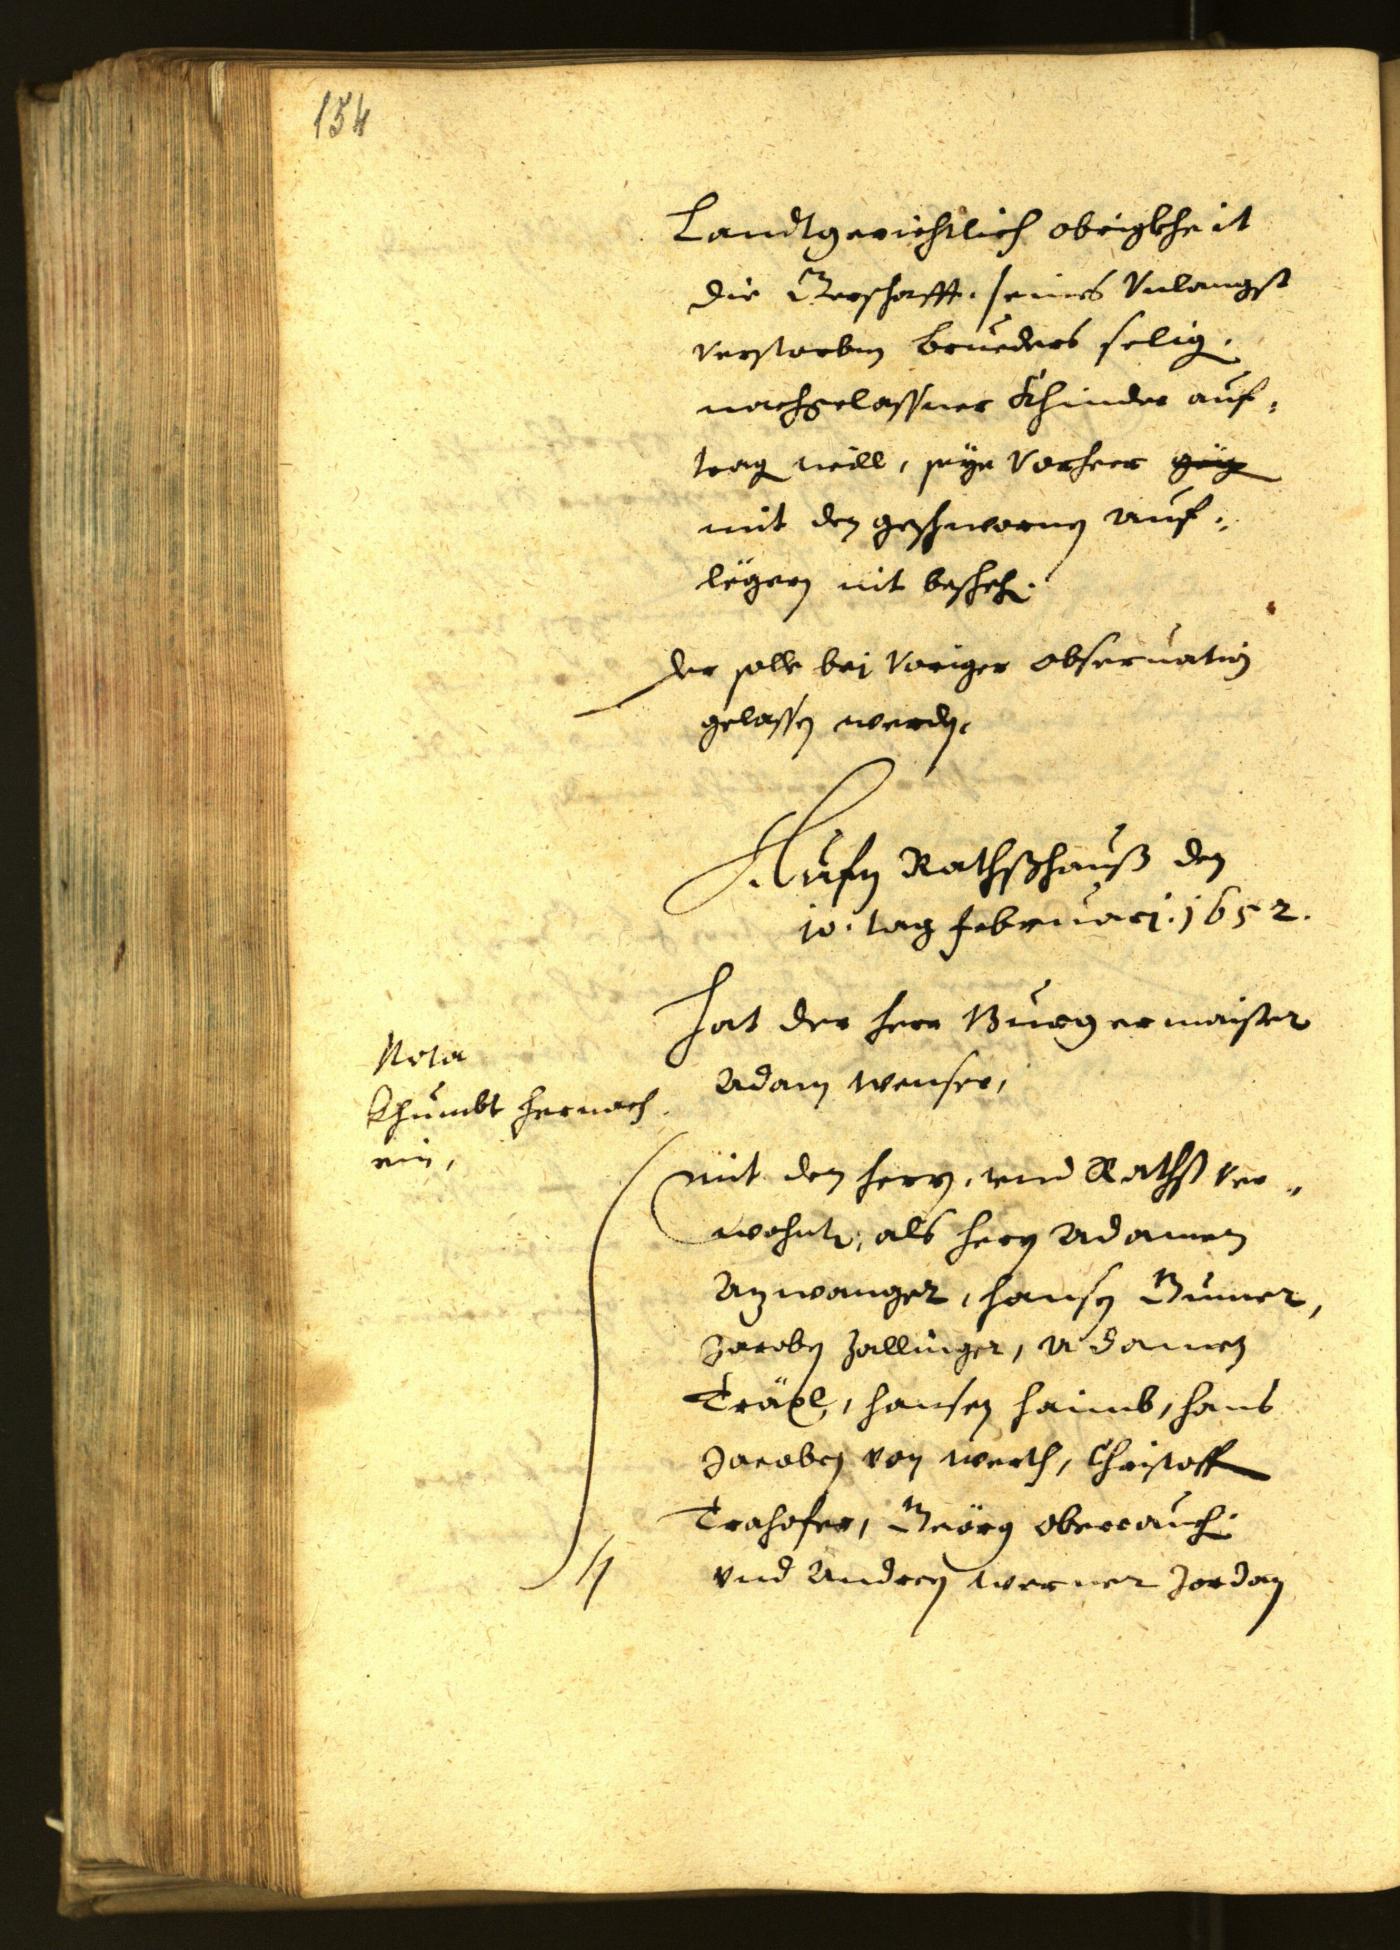 154
Landtgerichtlich obrigkheit
die Gerhafft. seines Vnlangst
Verstorbnen brueders selig.
nachgelassner Khinder auf-
trag well, seye Vorher
mit den geschwornen auf-
legern nit bescheh.
Der solle bei Voriger observation
gelassen werden.
Aufm Rathßhauß den
10. tag februarj. 1652.
Hat der herr Burgermaister
Adam Wenser,
Nota
Khumbt hernach
ein,
mit den herrn, vnd Rathß Ver-
wohnt, als herrn Adamen
Azwanger, Hansen Gumer,
Jacoben Zallinger, Adamen
Träxl, Hansen Haimb, Hans
Jacoben von Werth, Christoff
Trahofer, Geörg Oberrauch
vnd Andreen Werner Jordan